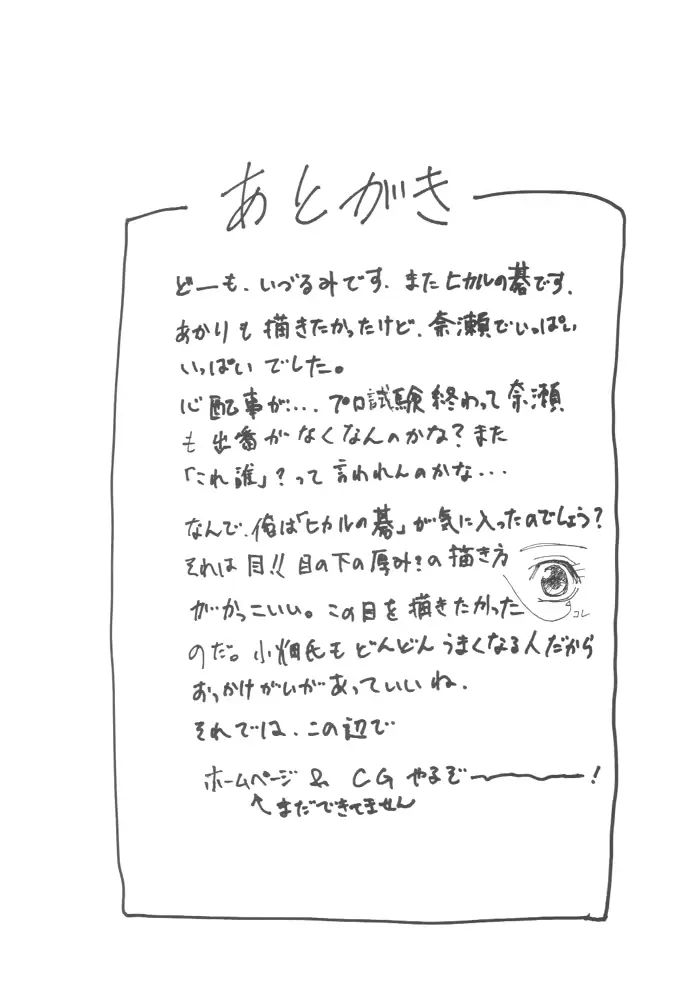 あとがき
どーも、いづるみです。またヒカルの碁です。
あかりも描きたかったけど、奈瀬でいっぱい
いっぱいでした。
心配事が…。プロ試験終わって奈瀬
も出番がなくなんのかな?また
「これ誰」?って言われんのかな...
なんで、俺は「ヒカルの碁」が気に入ったのでしょう?
それは目!!目の下の厚み?の描き方
がかっこいい。この目を描きたかった
コレ
のだ。小畑氏もどんどんうまくなる人だから
おっかけがいがあっていいね。
それでは、この辺で
ホームページ & CG やるぞ———!
↖まだできてません